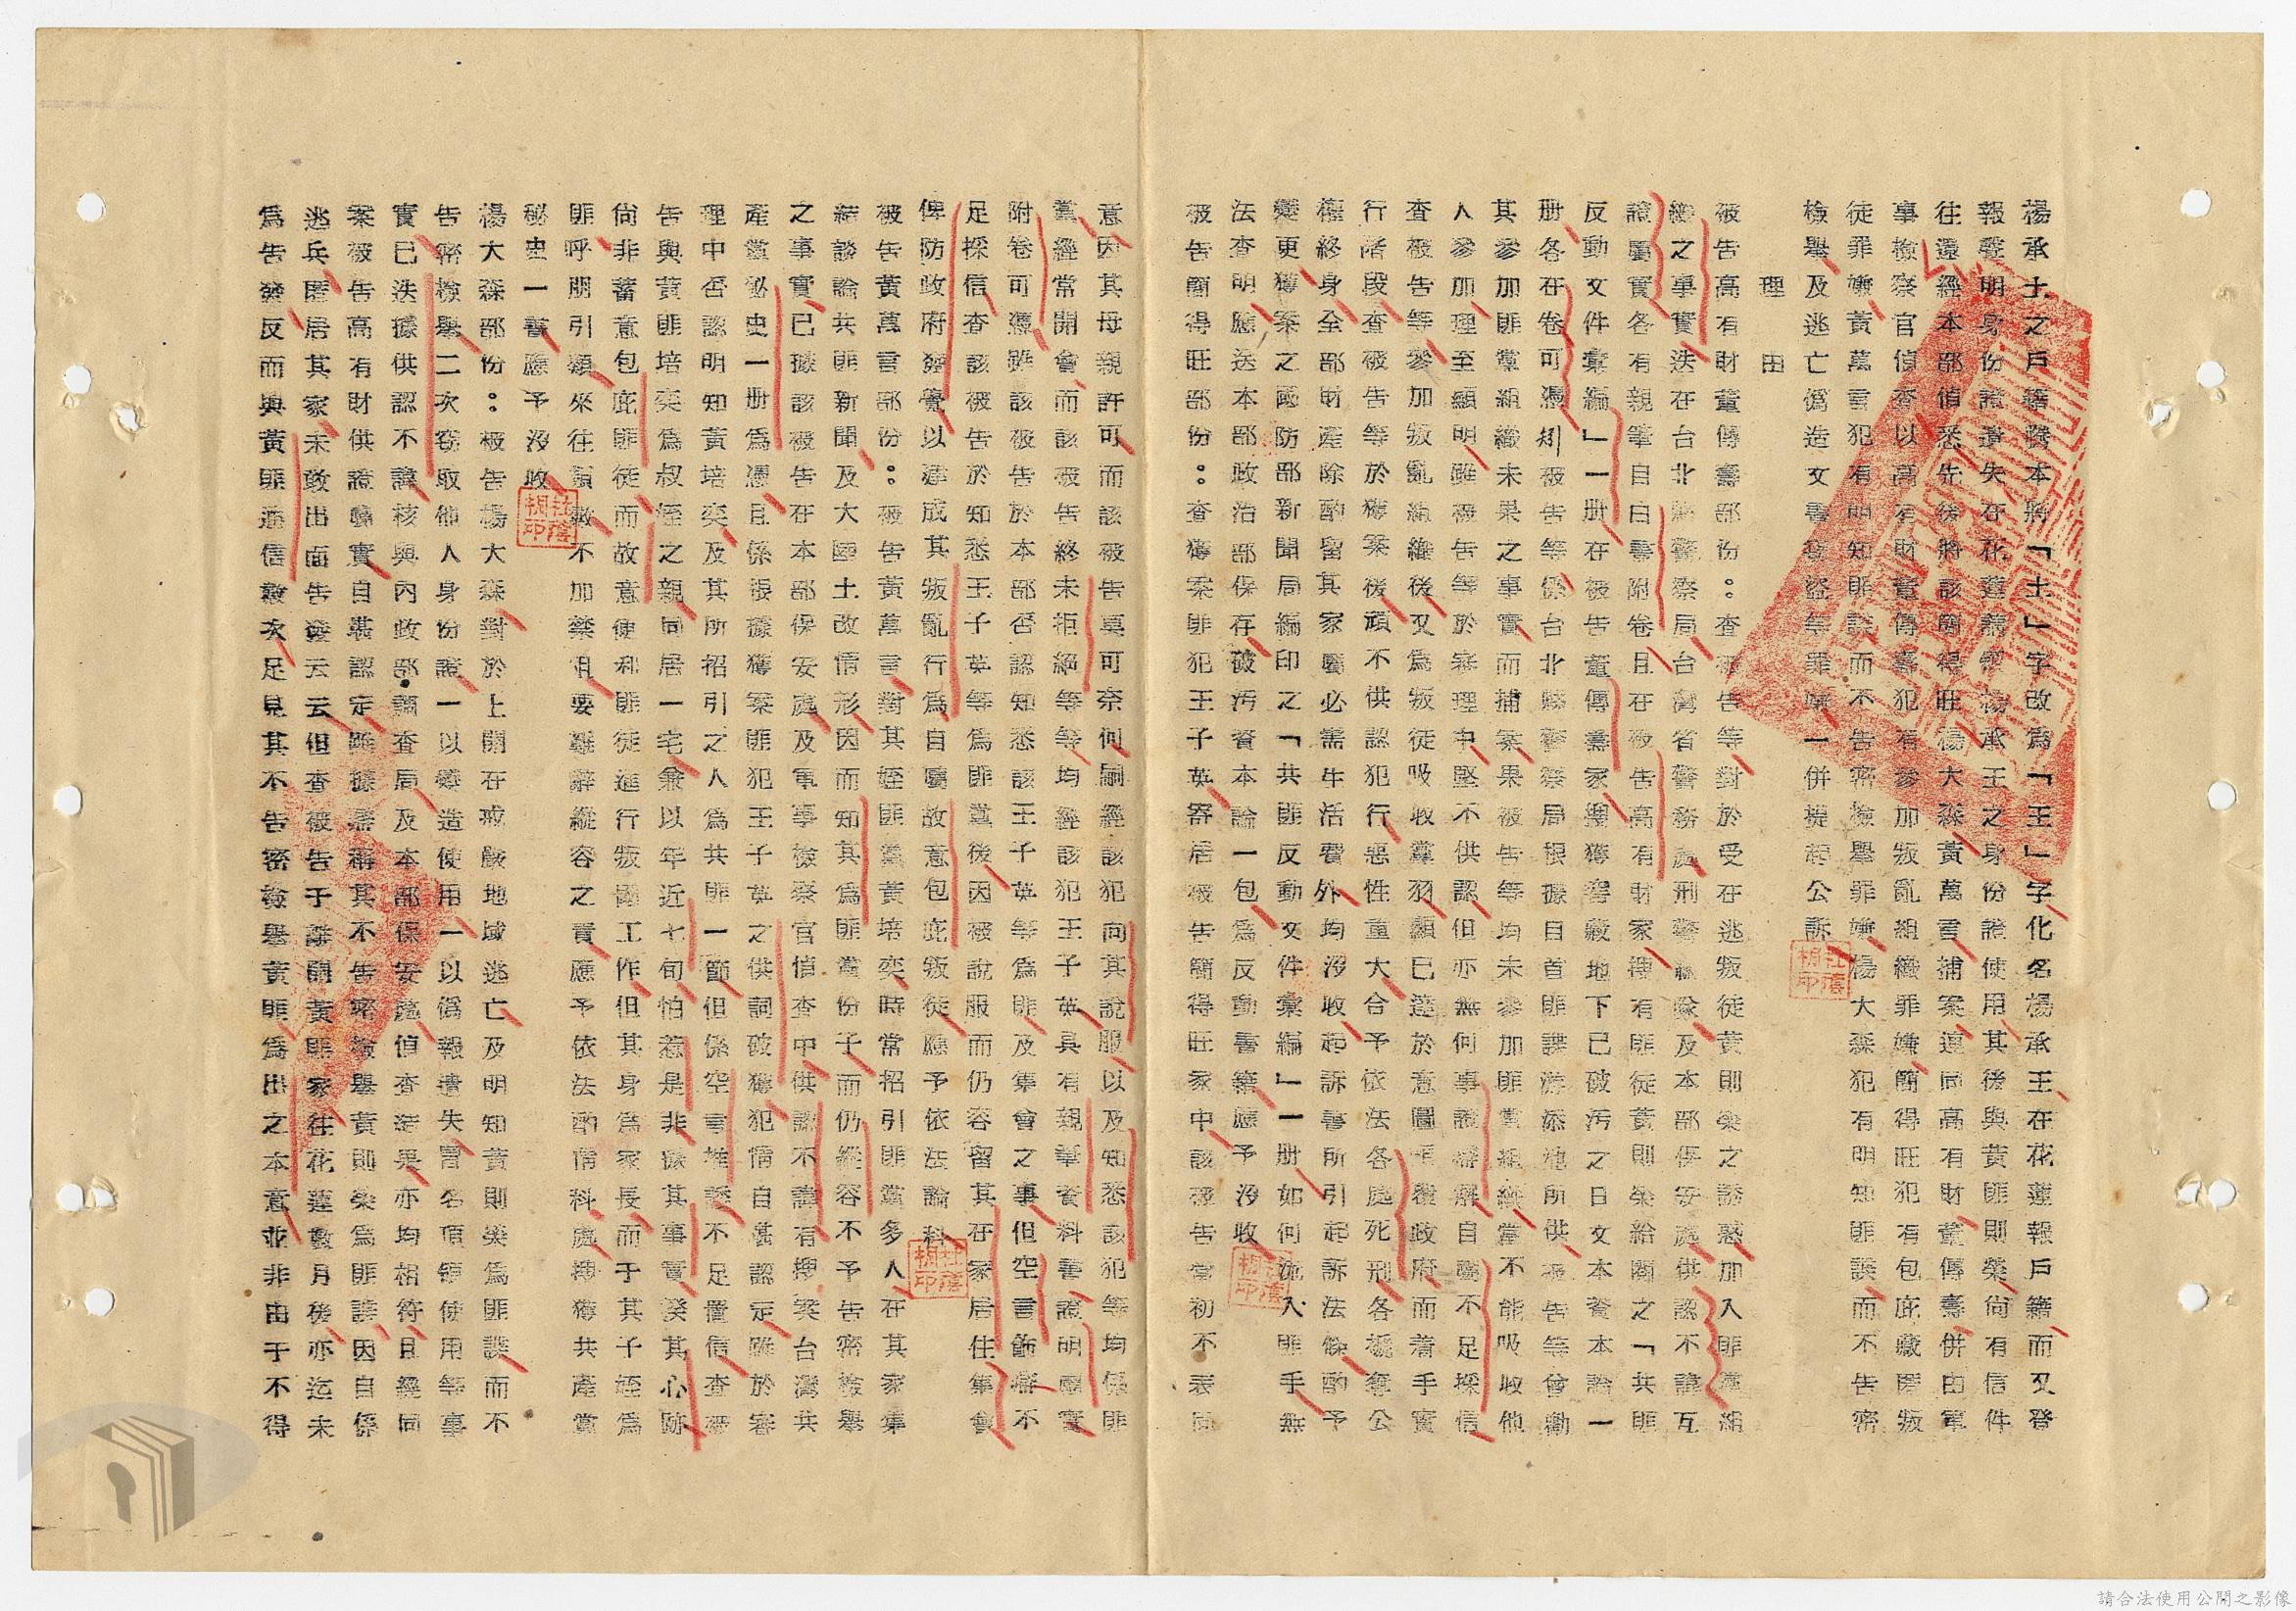 楊承土之戶籍謄本將「土」字改爲「王」字化名楊承王在花蓮報戶籍而又登
報聲明身份證遺失在花蓮請領楊承王之身份證使用其後與黃匪則榮尙有信件
往還經本部偵悉先後將該簡得旺楊大森黃萬言捕案連同高有財董傳壽併由軍
事檢察官偵查以高有財董傳壽犯有參加叛亂組織罪嫌簡得旺犯有包庇藏匿叛
徒罪嫌黃萬言犯有明知匪諜而不告密檢舉罪嫌楊大森犯有明知匪諜而不告密
檢舉及逃亡僞造文書竊盜等罪嫌一併提起公訴
理由
被告高有財董傳壽部份：查被告等對於受在逃叛徒黃則榮之誘惑加入匪黨組
織之事實迭在台北縣警察局台灣省警務處刑警總隊及本部保安處供認不諱互
證屬實各有親筆自白書附卷且在被告高有財家搜有匪徒黃則榮給閱之「共匪
反動文件彙編」一册在被告董傳壽家搜獲窖藏地下已破污之日文本資本論一
册各在卷可憑矧被告等係台北縣警察局根據自首匪諜游添地所供被告等曾勸
其參加匪黨組織未果之事實而捕案果被告等均未參加匪黨組織當不能吸收他
人參加理至顯明雖被告等於審理中堅不供認但亦無何事證辯解自屬不足採信
查被告等參加叛亂組織後又爲叛徒吸收黨羽顯已達於意圖顚覆政府而着手實
行階段查被告等於獲案後頑不供認犯行惡性重大合予依法各處死刑各褫奪公
權終身全部財產除酌留其家屬必需生活費外均沒收起訴書所引起訴法條酌予
變更獲案之國防部新聞局編印之「共匪反動文件彙編」一册如何流入匪手無
法查明應送本部政治部保存破污資本論一包爲反動書籍應予沒收
被告簡得旺部份：查獲案匪犯王子英寄居被告簡得旺家中該被告當初不表同
意因其母親許可而該被告莫可奈何嗣經該犯向其說服以及知悉該犯等均係匪
黨經常開會而該被告終未拒絕等等均經該犯王子英具有親筆資料書證明屬實
附卷可憑雖該被告於本部否認知悉該王子英等爲匪及集會之事但空言飾辯不
足採信查該被告於知悉王子英等爲匪黨後因被說服而仍容留其在家居住集會
俾防政府發覺以達成其叛亂行爲自屬故意包庇叛徒應予依法論科
被告黃萬言部份：被告黃萬言對其姪匪黨黃培奕時常招引匪黨多人在其家集
結談論共匪新聞及大陸土改情形因而知其爲匪黨份子而仍縱容不予告密檢舉
之事實已據該被告在本部保安處及軍事檢察官偵查中供認不諱有搜案台灣共
產黨祕史一册爲憑且係根據獲案匪犯王子英之供詞破獲犯情自甚認定雖於審
理中否認明知黃培奕及其所招引之人爲共匪一節但係空言推諉不足置信查被
告與黃匪培奕爲叔姪之親同居一宅兼以年近七旬怕惹是非據其事實癸其心跡
尙非蓄意包庇匪徒而故意使利匪徒進行叛亂工作但其身爲家長而于其子姪爲
匪呼朋引類來往頻繁不加禁阻要難辭縱容之責應予依法酌情科處搜獲共產黨
秘史一書應予沒收
楊大森部份：被告楊大森對於上開在戒嚴地域逃亡及明知黃則榮爲匪諜而不
告密檢舉二次竊取他人身份證一以變造使用一以僞報遺失冒名頂領使用等事
實已迭據供認不諱核與內政部調查局及本部保安處偵查結果亦均相符且經同
案被告高有財供證屬實自堪認定雖據辯稱其不告密檢舉黃則榮爲匪諜因自係
逃兵匿居其家未敢出面告發云云但查被告于離開黃匪家往花蓮數月後亦迄未
爲告發反而與黃匪通信數次足見其不告密檢舉黃匪爲出之本意並非由于不得
請合法使用公開之影像